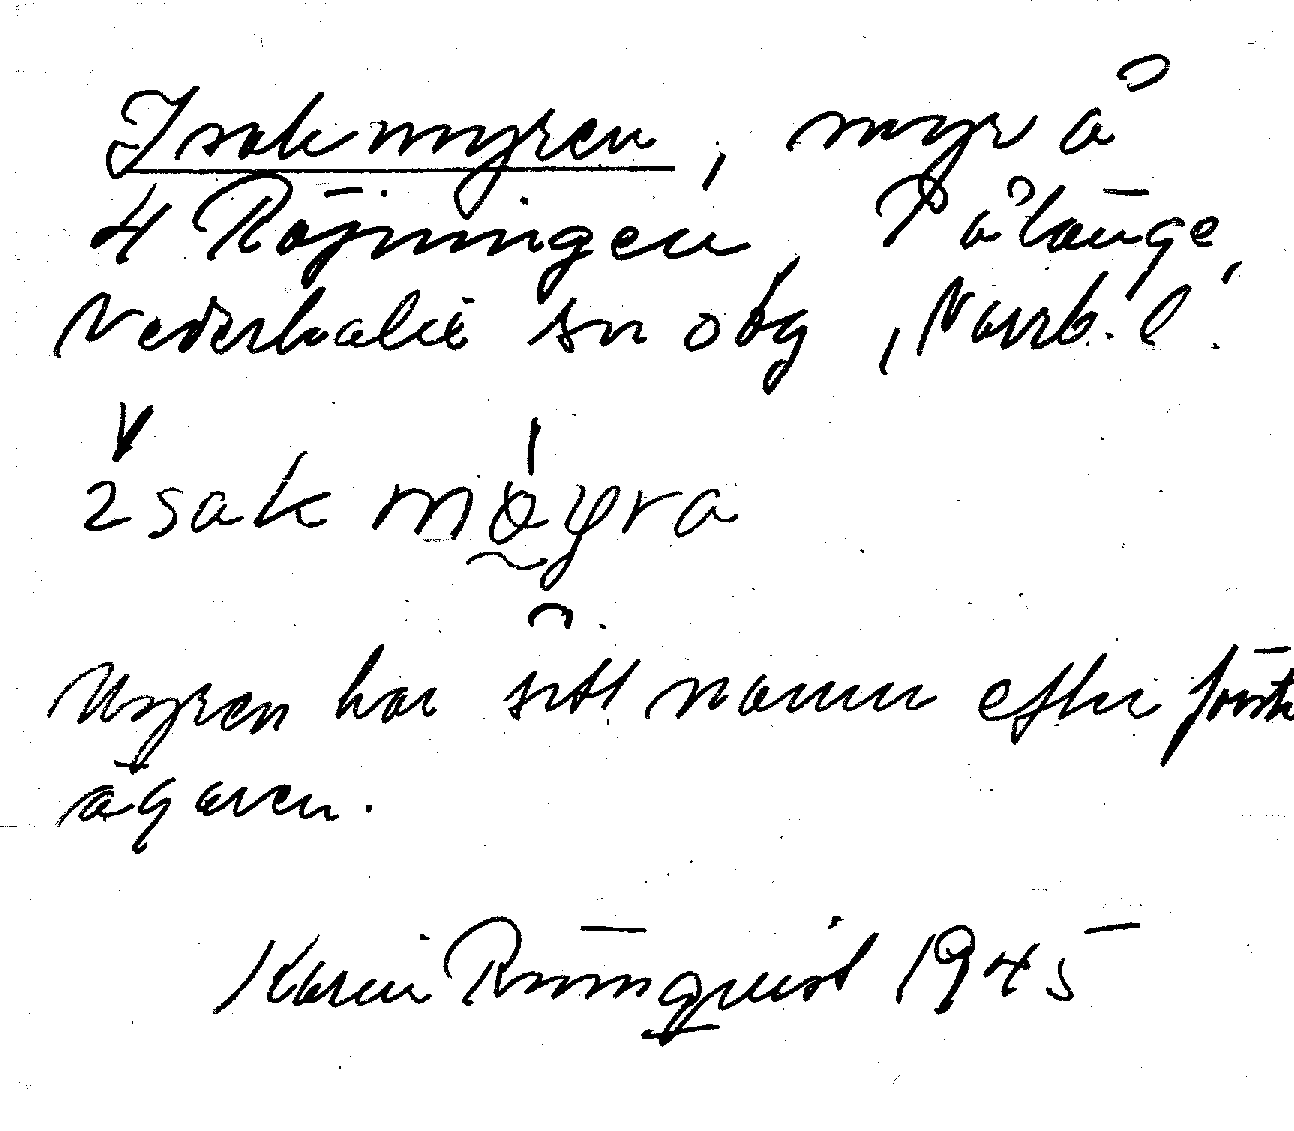 Isakmyren, myr å
4 Röjningen, Pålänge,
Nederkalix sn o bg, Norrb. l.
isak møyra
Myren har sitt namn efter förste
ägaren.
Karin Rönnquist 1945